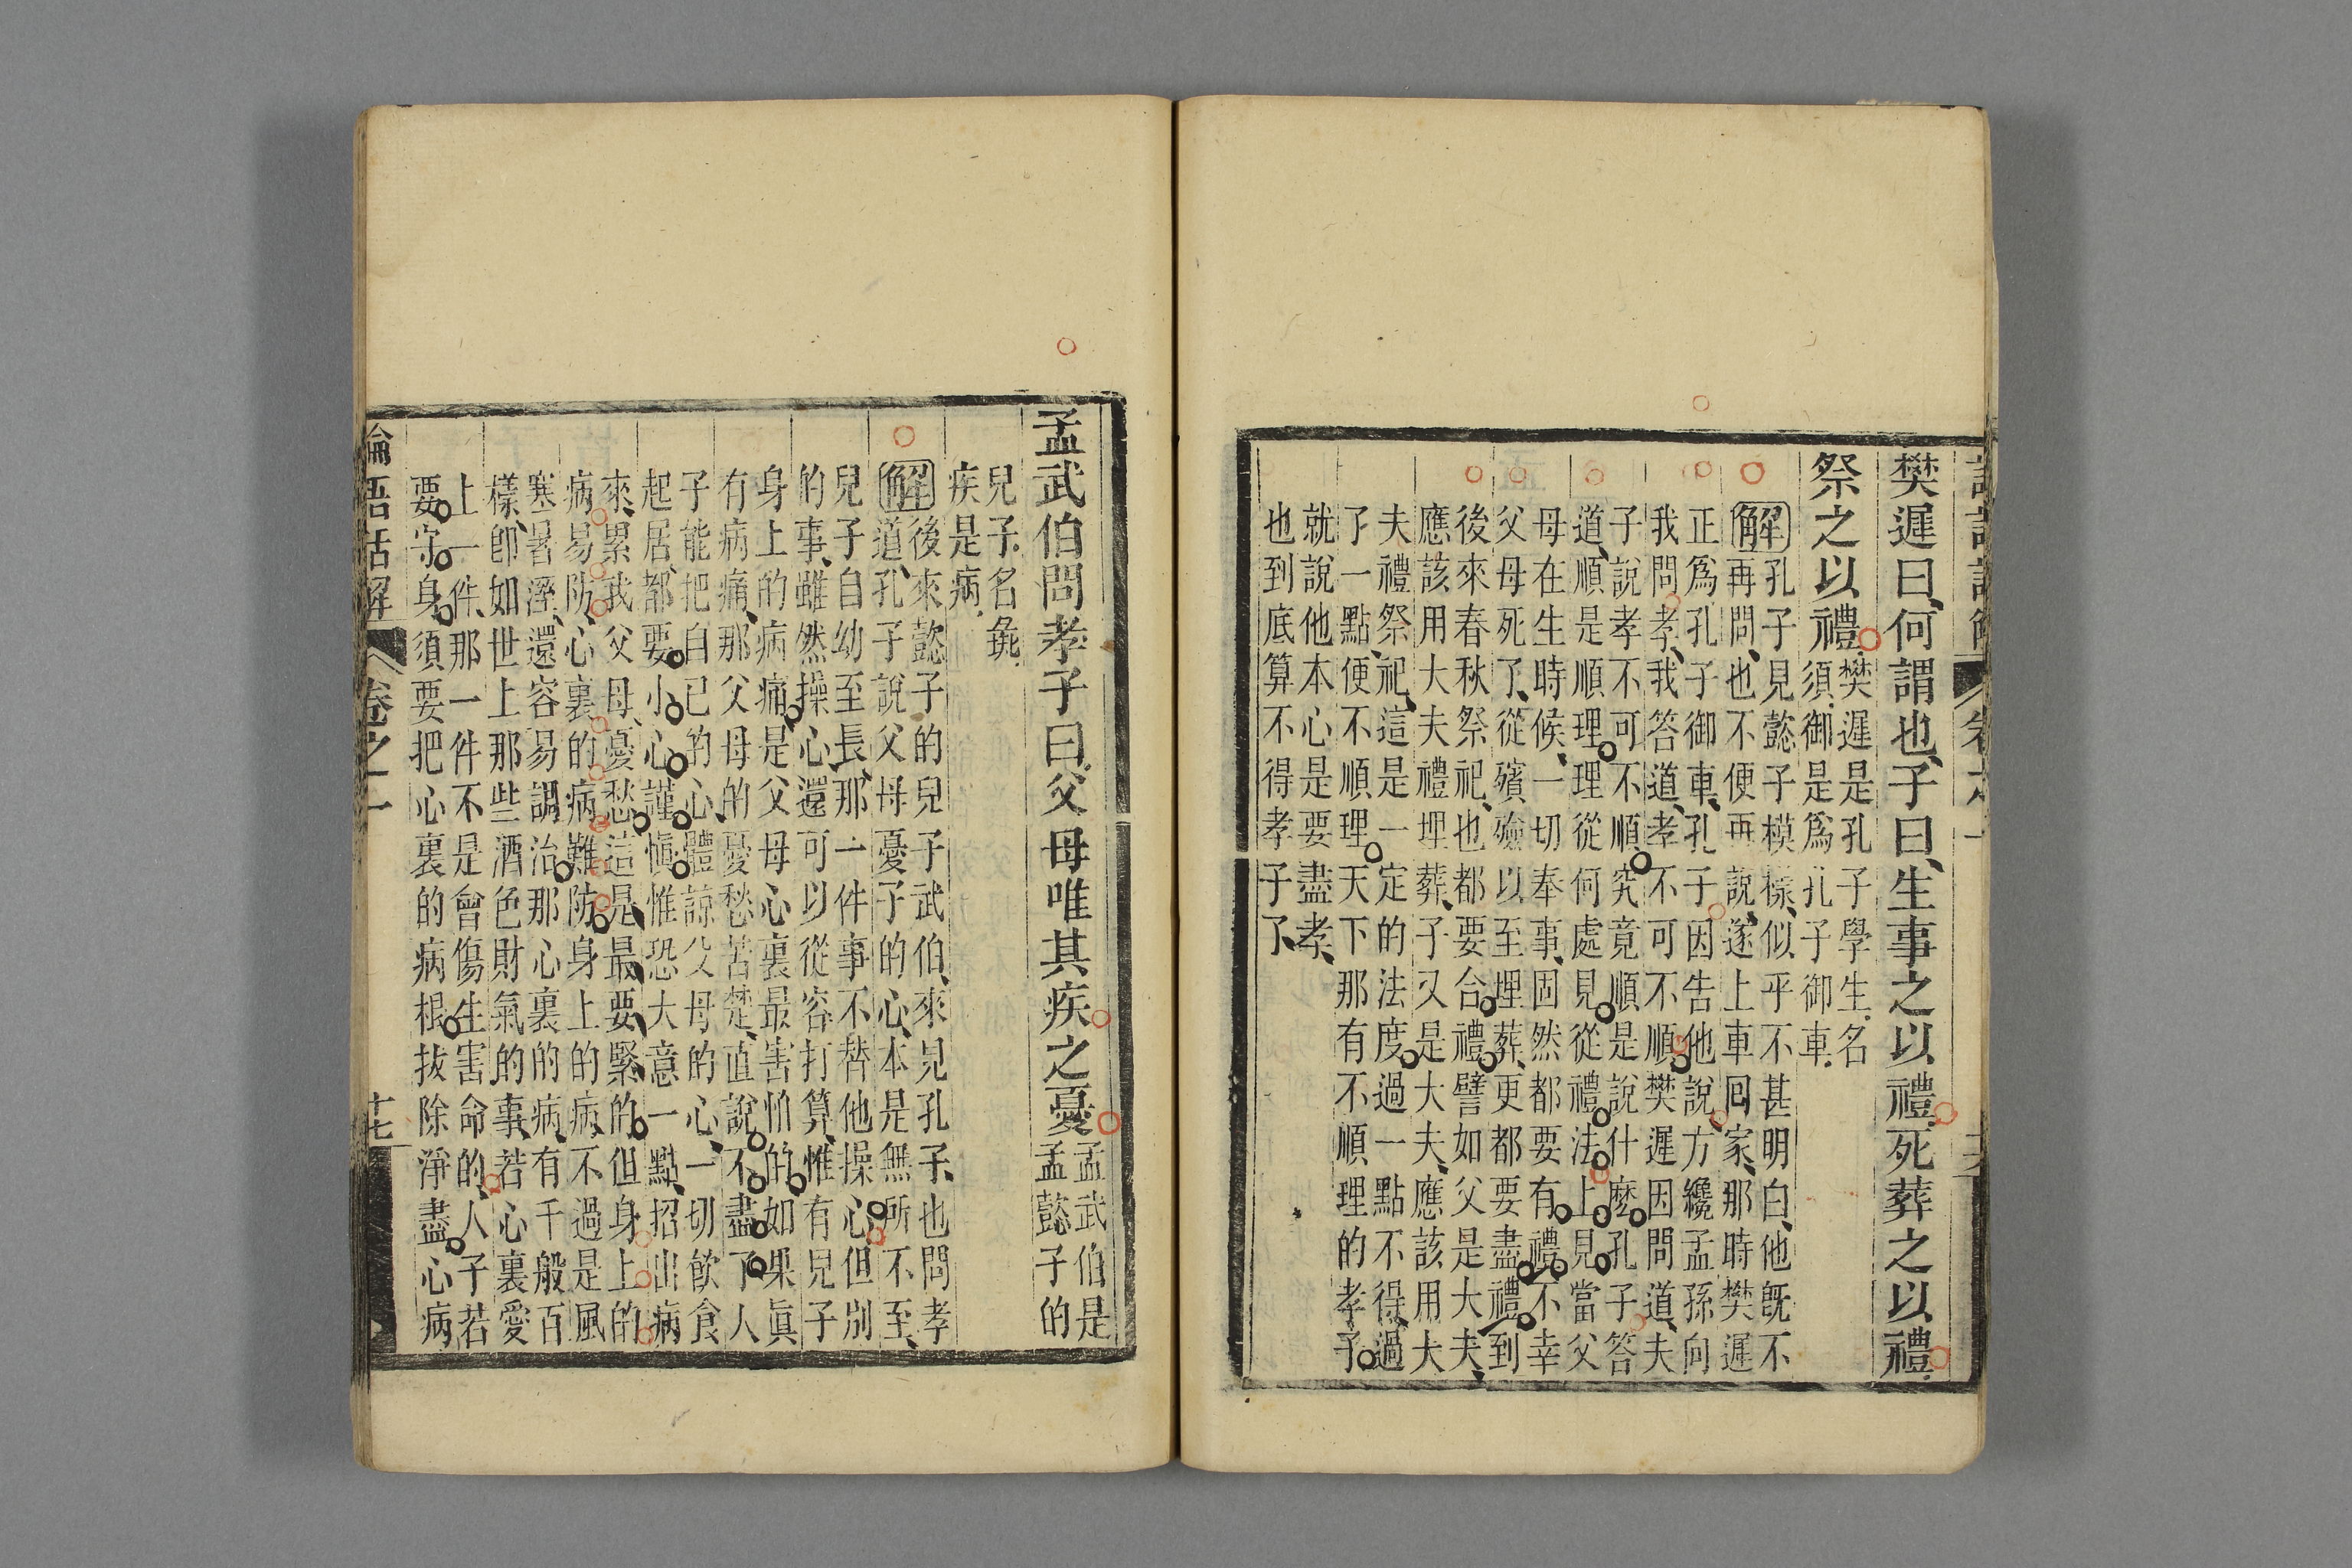 樊遲曰、何謂也、子曰、生事之以禮、死葬之以禮、
祭之以禮、
樊遲是孔子學生、名
須、御是爲孔子御車、
解
孔子見懿子模樣、似乎不甚明白、他旣不
再問、也不便再說、遂上車回家、那時樊遲
正爲孔子御車、孔子因告他說、方纔孟孫向
我問孝、我答道、孝不可不順、樊遲因問道、夫
子說孝不可不順究竟順是說什麽、孔子答
道、順是順理理從何處見從禮法上見當父
母在生時候、一切奉事、固然都要有禮不幸
父母死了、從殯殮以至埋葬、更都要盡禮到
後來春秋祭祀、也都要合禮譬如父是大夫、
應該用大夫禮埋葬、子又是大夫、應該用大
夫禮祭祀、這是一定的法度過一點不得、過
了一點、便不順理天下那有不順理的孝子
就說他本心是要盡孝、
也到底算不得孝子了、
孟武伯問孝子曰、父母唯其疾之憂
孟武伯是
孟懿子的
兒子、名彘、
疾是病、
解
後來懿子的兒子武伯、來見孔子、也問孝
道、孔子說父母憂子的心、本是無所不至、
兒子自幼至長、那一件事不替他操心但別
的事、雖然操心、還可以從容打算、惟有兒子
身上的病痛、是父母心裏最害怕的、如果眞
有病痛、那父母的憂愁苦楚、直說不盡了人
子能把自己的心、體諒父母的心、一切飮食
起居、都要小心謹愼惟恐大意一點、招出病
來、累我父母、憂愁這是最要緊的但身上的
病易防、心裏的病難防身上的病、不過是風
寒暑溼、還容易調治那心裏的病、有千般百
樣、卽如世上那些酒色財氣的事、若心裏愛
上一件、那一件不是會傷生害命的、人子若
要守身須要把心裏的病根拔除淨盡心病
論語話解 卷之一 十七